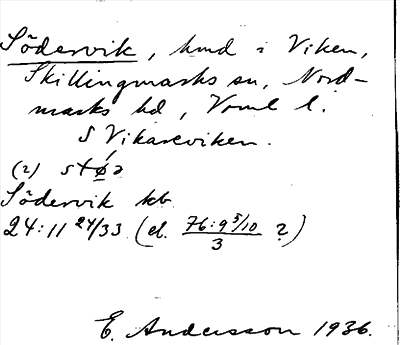 Södervik, hmd i Viken,
Skillingmarks sn, Nord-
marks hd, Vrml l.
S Vikareviken.
(2)
Södervik kb
24:11 24/33 (el. 76:9 5/10 / 3 ?)
E. Andersson 1936.